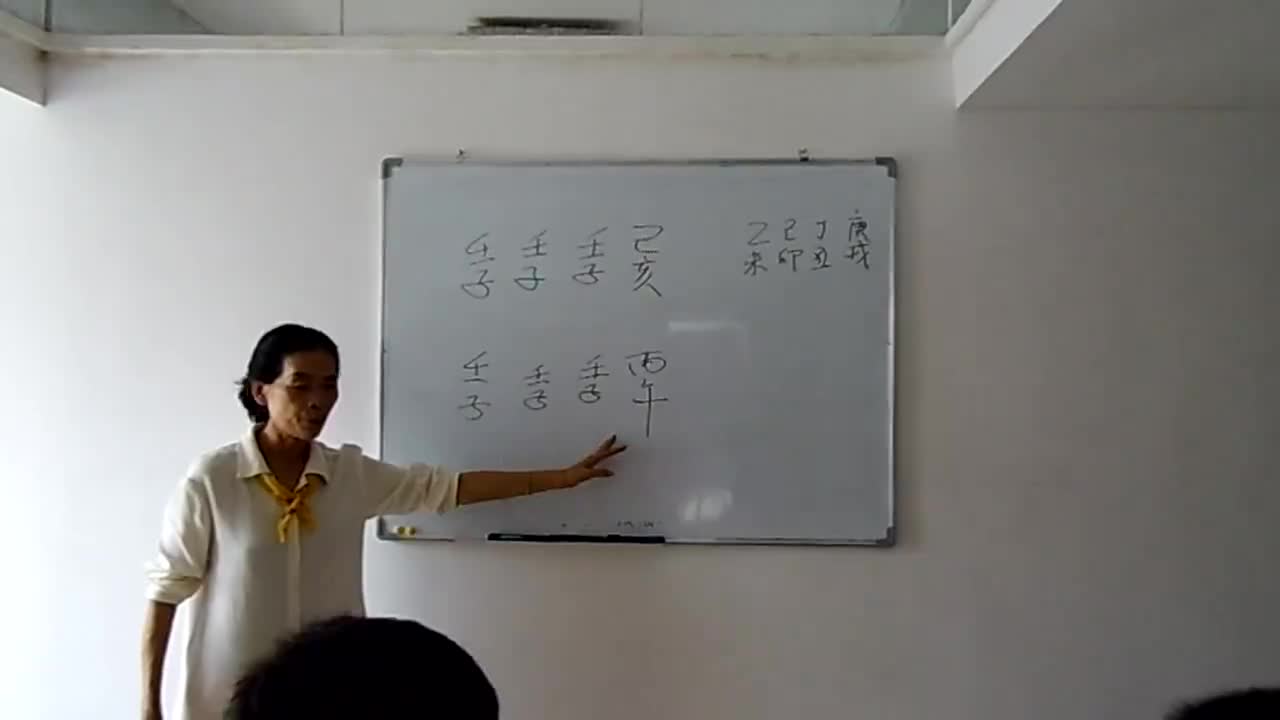 壬 壬 壬 己
子 子 子 亥
乙 己 丁 庚
未 卯 丑 戌
壬 壬 壬 丙
子 子 子 午